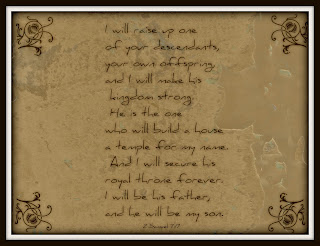 I will raise up one
of your descendants,
your own offspring,
and I will make his
kingdom strong.
He is the one
who will build a house
a temple for my name.
And I will secure his
royal throne forever.
I will be his father,
and he will be my son.